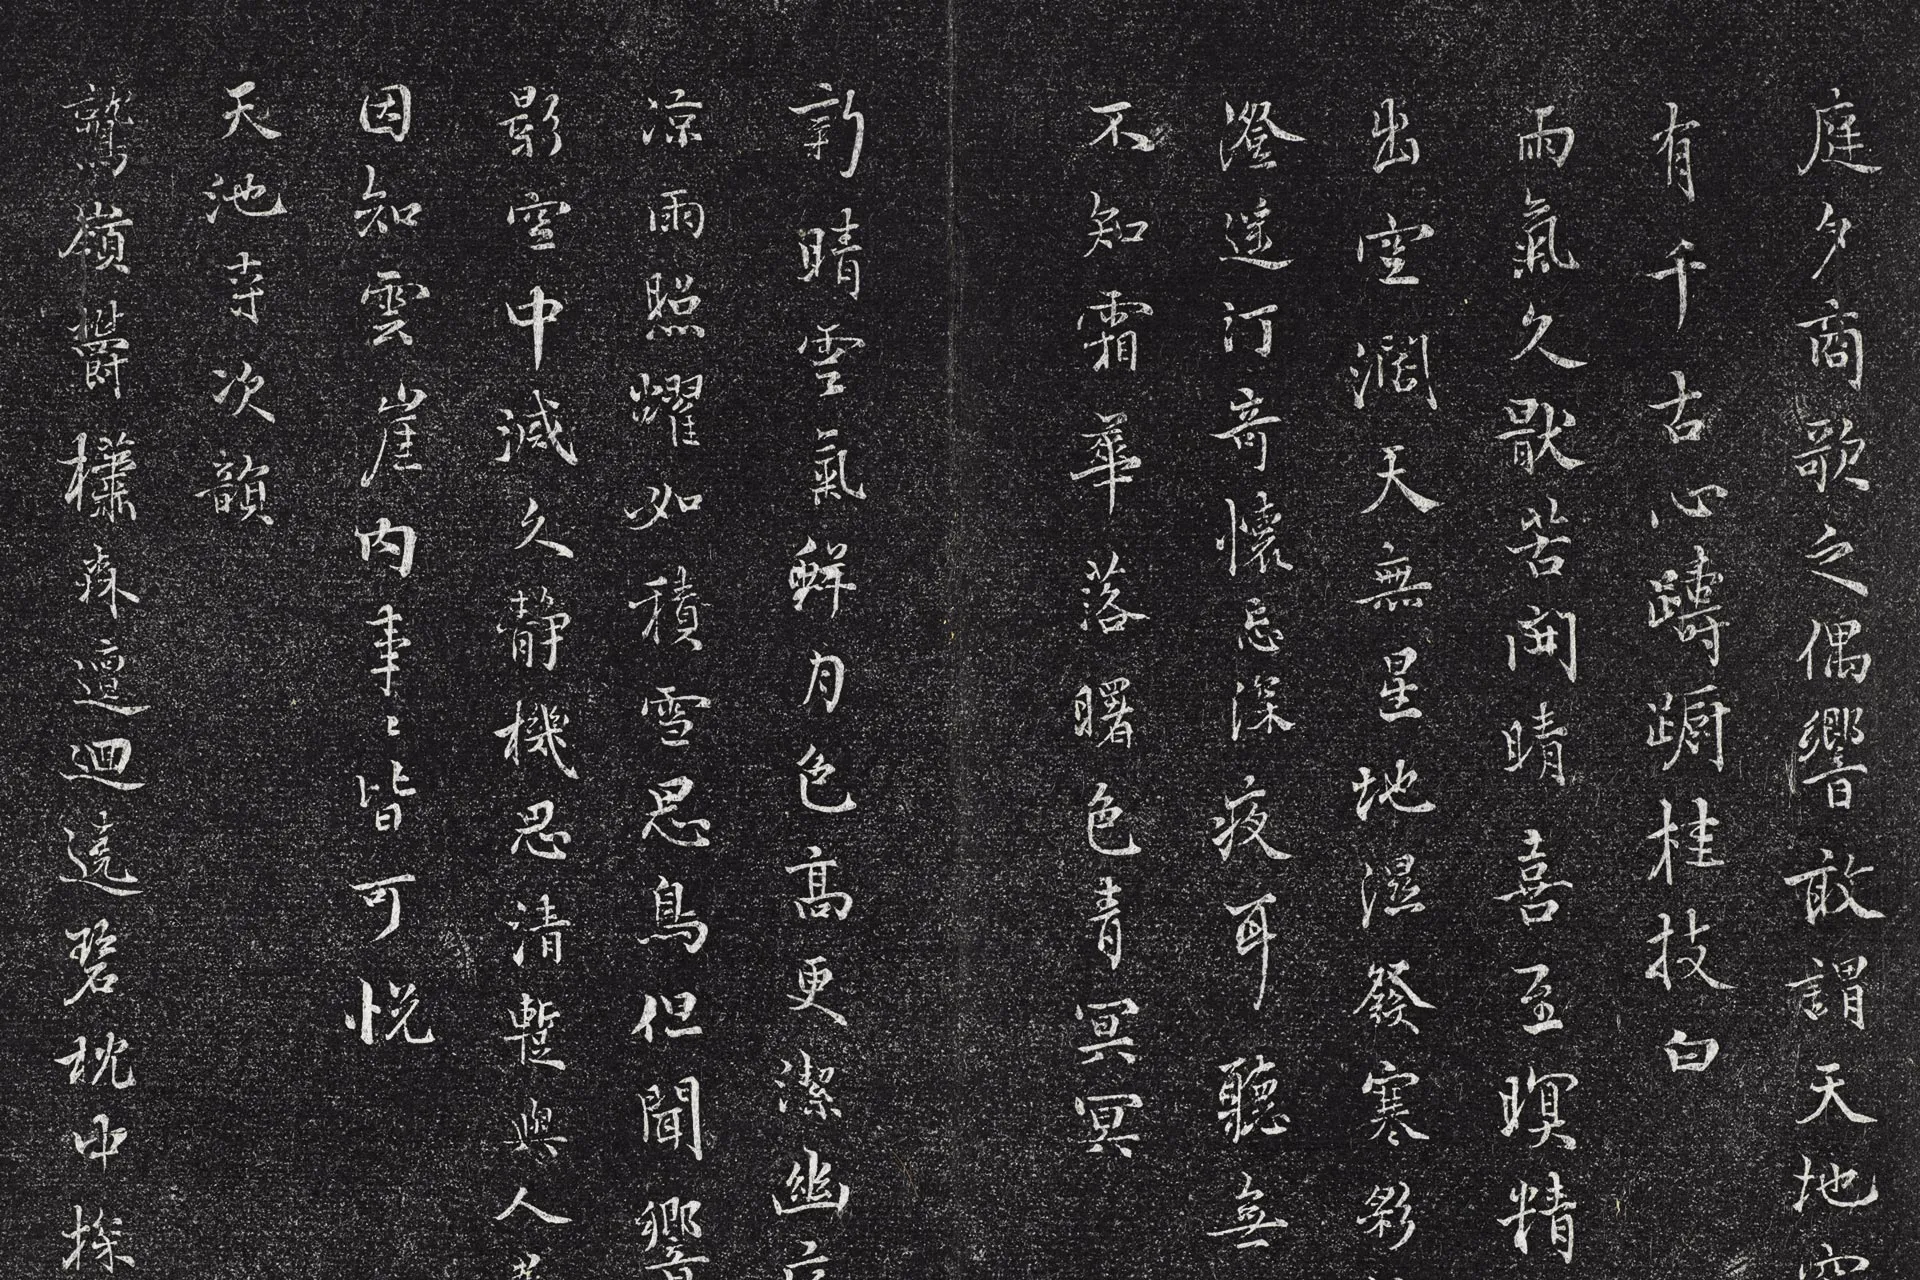 庭夕商歌之偶響敢謂天地空
有千古心躊躕桂枝白
雨氣久歇苦開晴喜至暝精
出空濶天無星地濕發寒彩
澄遥汀奇懷忌深夜耳聽無
不知霜華落曙色青冥冥
新晴雲氣鮮月色高更潔幽
涼雨照耀如積雪思鳥但聞響
影空中減久靜機思清暫與人
因知雲崖内事〻皆可悦
天池寺次韻
鷲嶺欝森邅迴遶碧枕中探